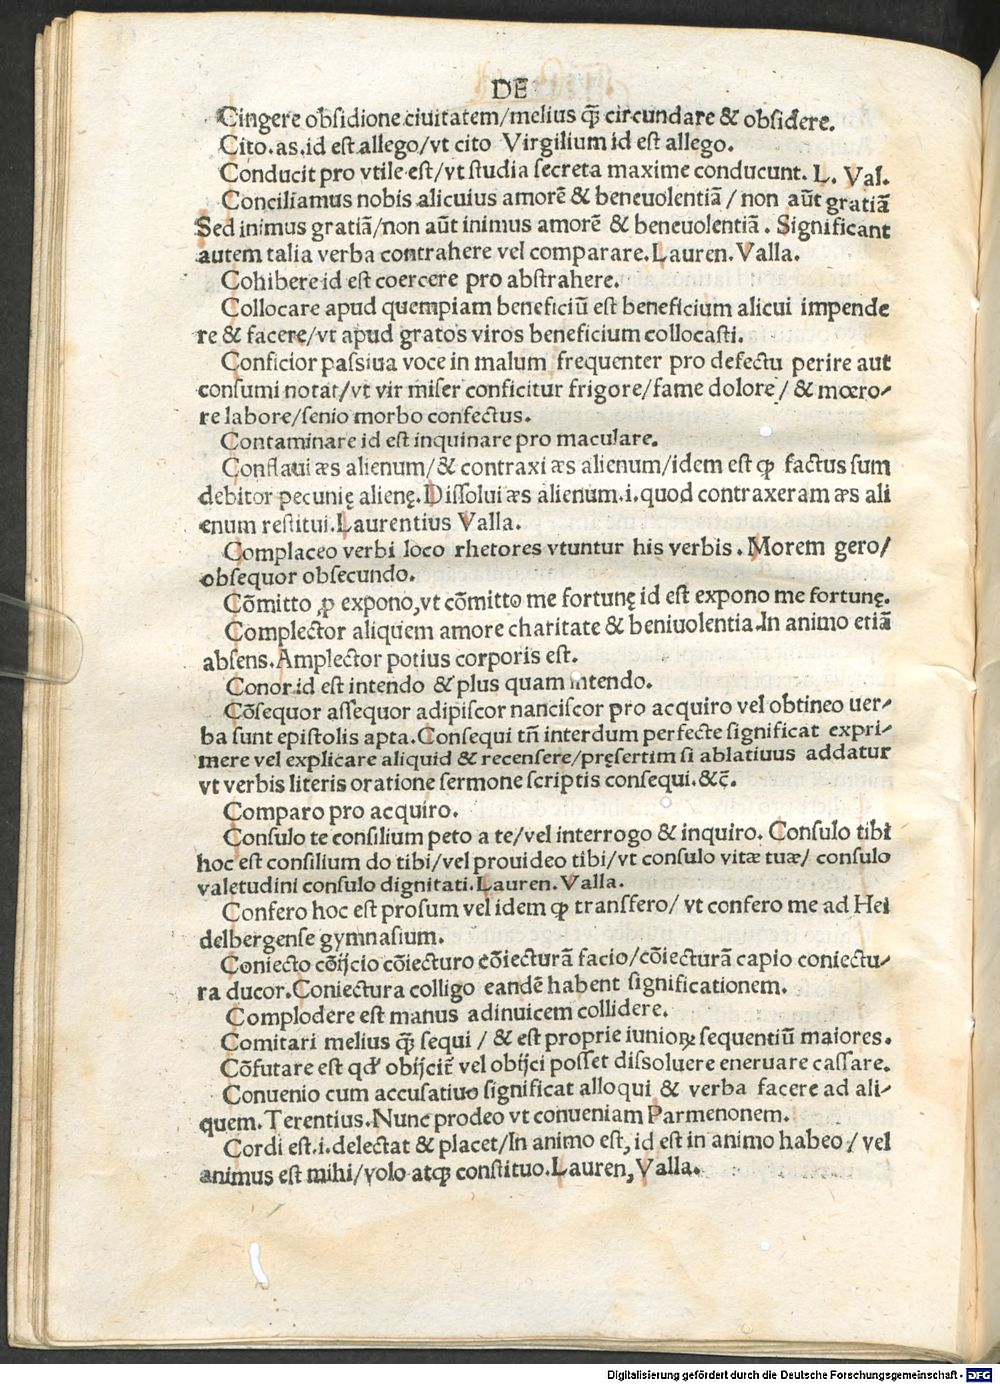 DE
Cingere obsidione ciuitatem/melius q̃ circundare & obsidere.
Cito.as.id est allego/vt cito Virgilium id est allego.
Conducit pro vtile est/vt studia secreta maxime conducunt. L. Val.
Conciliamus nobis alicuius amorẽ & beneuolentiã / non aũt gratiã
Sed inimus gratiã/non aũt inimus amorẽ & beneuolentiã. Significant
autem talia verba contrahere vel comparare.Lauren.Valla.
Cohibere id est coercere pro abstrahere.
Collocare apud quempiam beneficiũ est beneficium alicui impende
re & facere/vt apud gratos viros beneficium collocasti.
Conficior passiua voce in malum frequenter pro defectu perire aut
consumi notat/vt vir miser conficitur frigore/fame dolore/ & mœro-
re labore/senio morbo confectus.
Contaminare id est inquinare pro maculare.
Conflaui æs alienum/& contraxi æs alienum/idem est ꝙ factus sum
debitor pecunię alienę.Dissolui æs alienum.i.quod contraxeram æs ali
enum restitui.Laurentius Valla.
Complaceo verbi loco rhetores vtuntur his verbis. Morem gero/
obsequor obsecundo.
Cõmitto ꝓ expono,vt cõmitto me fortunę id est expono me fortunę.
Complector aliquem amore charitate & beniuolentia.In animo etiã
absens.Amplector potius corporis est.
Conor id est intendo & plus quam intendo.
Cõsequor assequor adipiscor nanciscor pro acquiro vel obtineo uer-
ba sunt epistolis apta.Consequi tñ interdum perfecte significat expri-
mere vel explicare aliquid & recensere/pręsertim si ablatiuus addatur
vt verbis literis oratione sermone scriptis consequi.&c̃.
Comparo pro acquiro.
Consulo te consilium peto a te/vel interrogo & inquiro. Consulo tibi
hoc est consilium do tibi/vel prouideo tibi/vt consulo vitæ tuæ/ consulo
valetudini consulo dignitati.Lauren.Valla.
Confero hoc est prosum vel idem ꝙ transfero/ vt confero me ad Hei
delbergense gymnasium.
Coniecto cõijcio cõiecturo cõiecturã facio/cõiecturã capio coniectu-
ra ducor.Coniectura colligo eandẽ habent significationem.
Complodere est manus adinuicem collidere.
Comitari melius q̃ sequi / & est proprie iunioꝝ sequentiũ maiores.
Cõfutare est qđ obijcit̃ vel obijci posset dissoluere eneruare cassare.
Conuenio cum accusatiuo significat alloqui & verba facere ad ali-
quem.Terentius.Nunc prodeo vt conueniam Parmenonem.
Cordi est.i.delectat & placet/In animo est, id est in animo habeo/ vel
animus est mihi/volo atqꝫ constituo.Lauren,Valla.
Digitalisierung gefördert durch die Deutsche Forschungsgemeinschaft - DFG